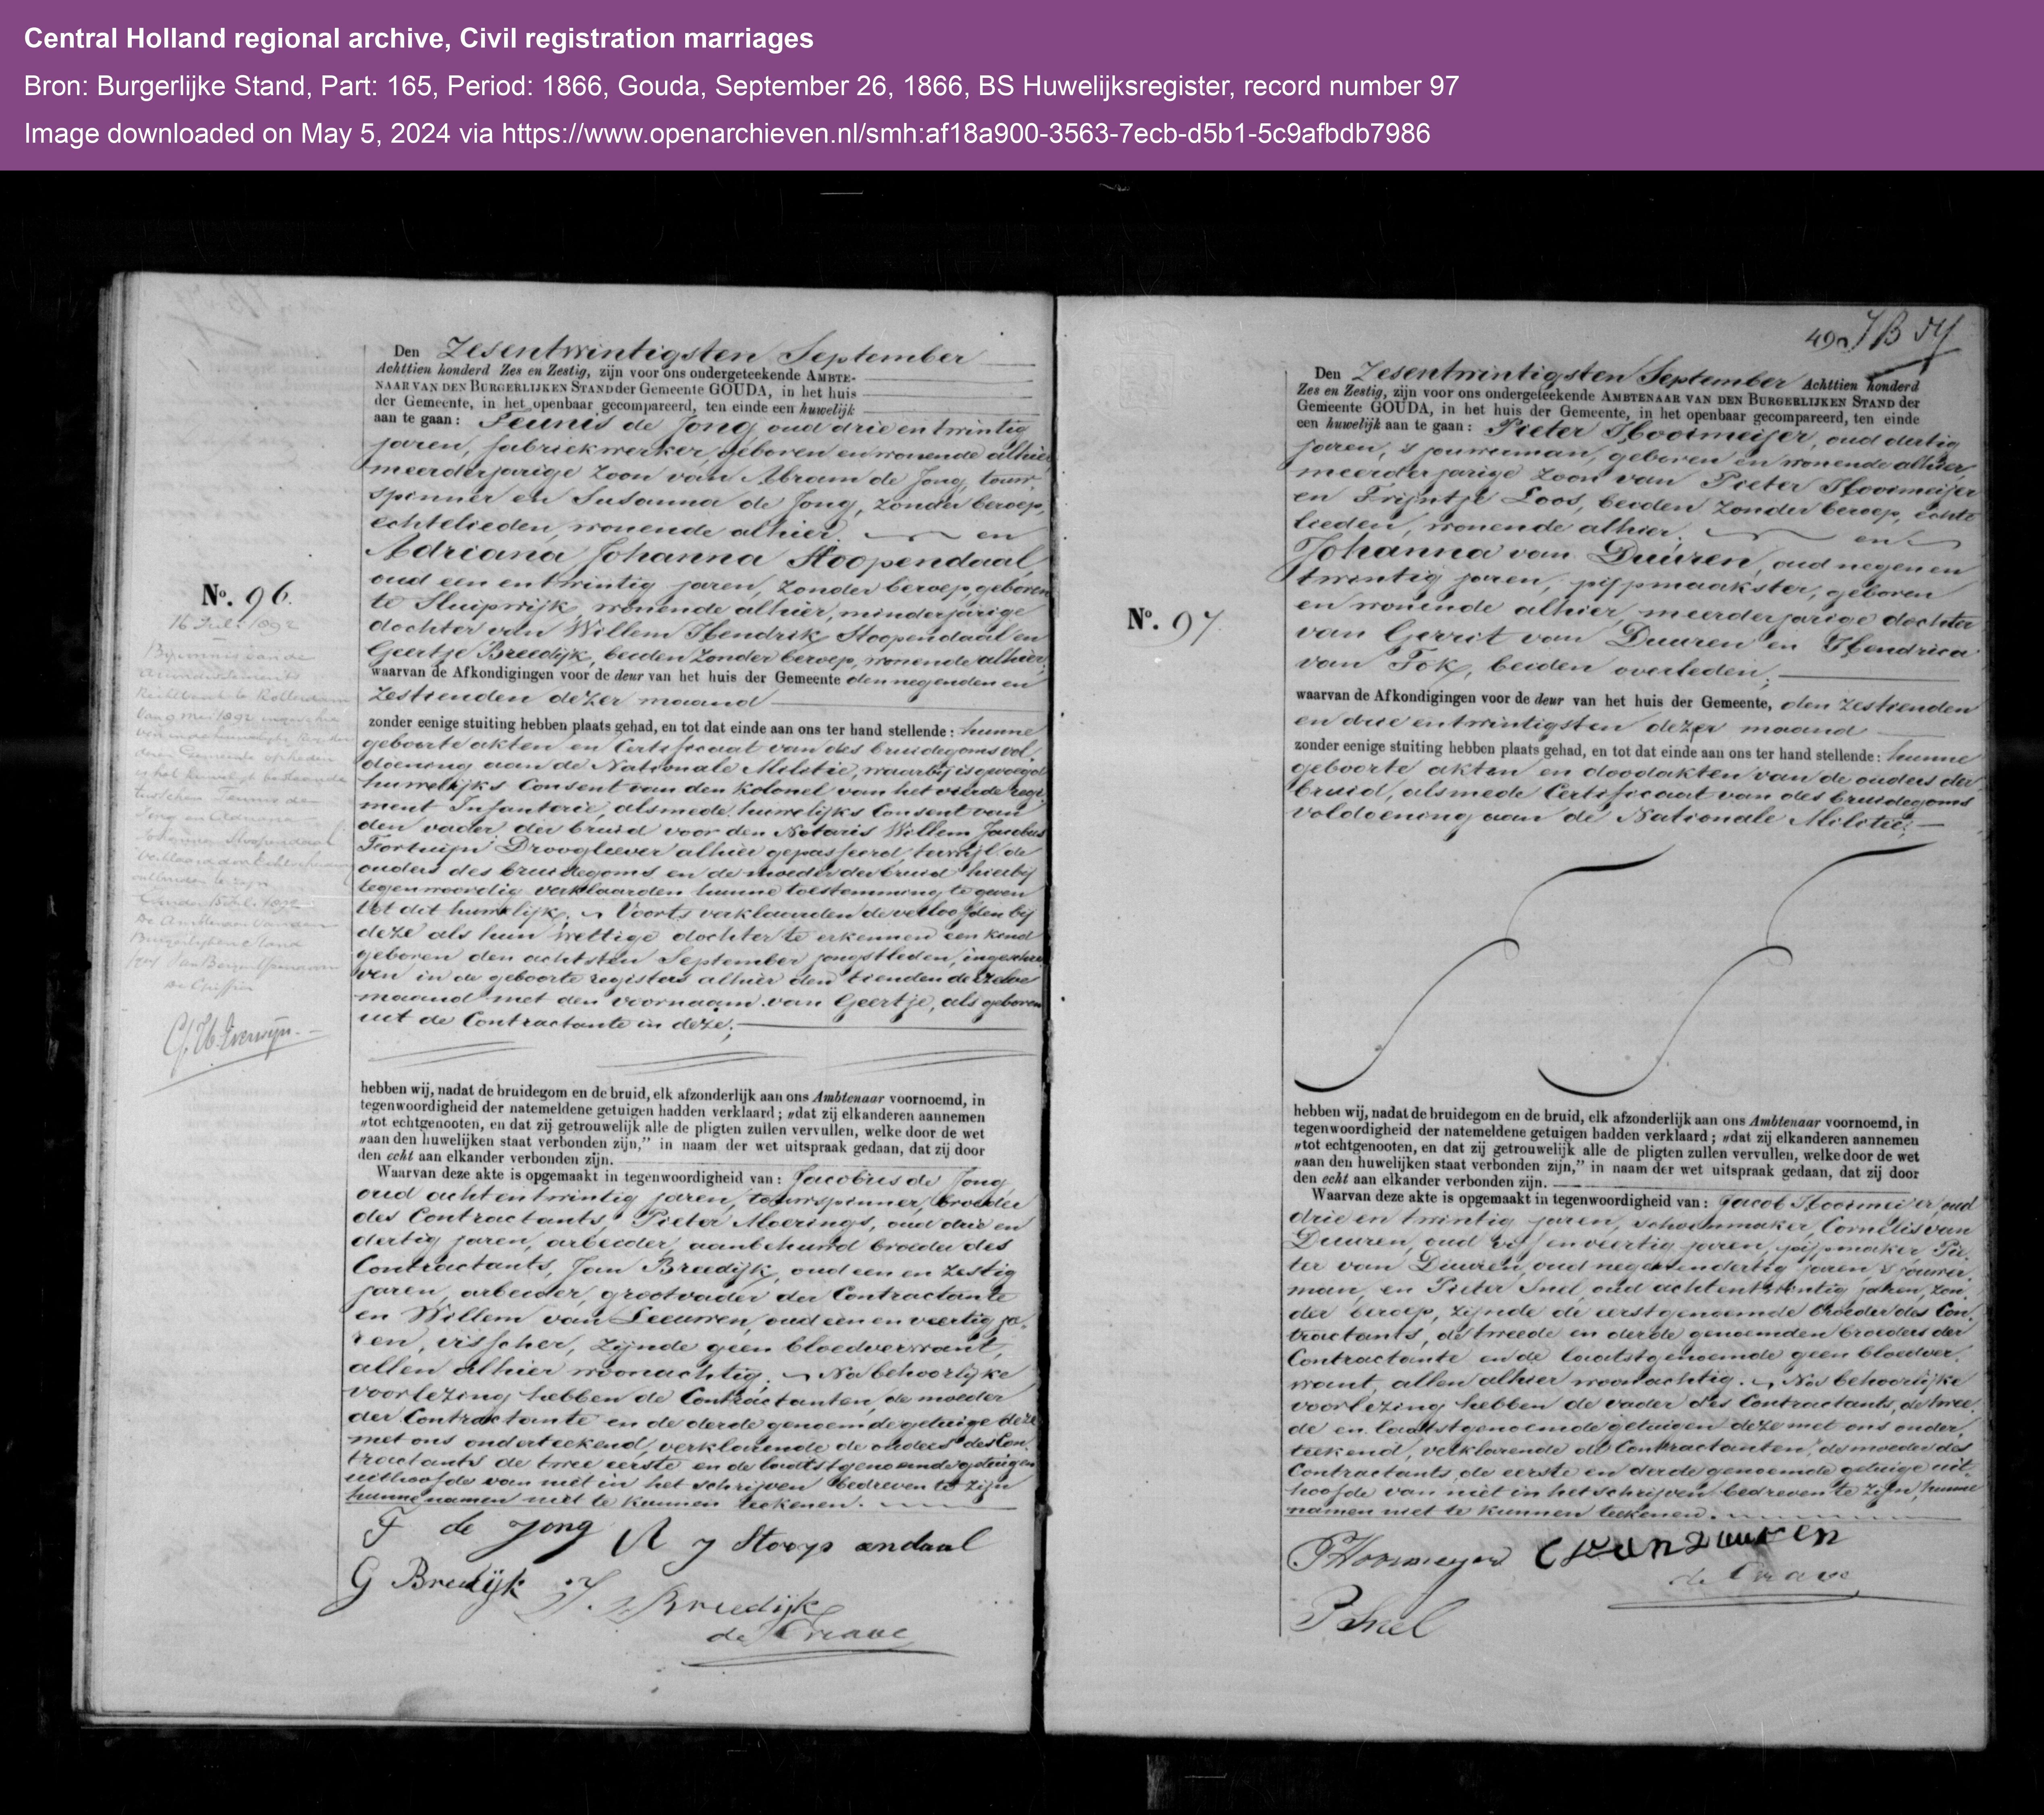 Central Holland regional archive, Civil registration marriages
Bron: Burgerlijke Stand, Part: 165, Period: 1866, Gouda, September 26, 1866, BS Huwelijksregister, record number 97
Image downloaded on May 5, 2024 via https://www.openarchieven.nl/smh:af18a900-3563-7ecb-d5b1-5c9afbdb7986
Den Zesentwintigsten September
Achttien honderd Zes en Zestig, zijn voor ons ondergeteekende AMBTE-
NAAR VAN DEN BURGERLIJKEN STAND der Gemeente GOUDA, in het huis
der Gemeente, in het openbaar gecompareerd, ten einde een huwelijk
aan te gaan: Teunis de Jong, oud drie en twintig
jaren, fabriekwerker, geboren en wonende alhier
meerderjarige zoon van Abram de Jong, touw-
spinner en Susanna de Jong, zonder beroep,
echtelieden, wonende alhier. en
Adriana Johanna Stoopendaal
oud een en twintig jaren, zonder beroep, geboren
te Sluipwijk, wonende alhier, minderjarige
dochter van Willem Hendrik Stoopendaal en
Geertje Breedijk, beiden zonder beroep, wonende alhier;
waarvan de Afkondigingen voor de deur van het huis der Gemeente den negenden en
zestienden dezer maand
zonder eenige stuiting hebben plaats gehad, en tot dat einde aan ons ter hand stellende: hunne
geboorte akten en Certificaat van des bruidegoms vol-
doening aan de Nationale Militie, waarbij is gevoegd
huwelijks Consent van den Kolonel van het vierde regi
ment Infanterie, alsmede huwelijks Consent van
den vader der bruid voor den Notaris Willem Jacobus
Fortuijn Droogleever alhier gepasseerd, terwijl de
ouders des bruidegoms en de moeder der bruid hierbij
tegenwoordig verklaarden hunne toestemming te geven
tot dit huwelijk. Voorts verklaarden de verloofden bij
deze als hun wettige dochter te erkennen een kind
geboren den achtsten September jongstleden, ingeschre
ven in de geboorte registers alhier den tienden derzelve
maand met den voornaam van Geertje, als geboren
uit de Contractante in deze;
No. 96.
16 Juli 1892
Bij vonnis van de
Arrondissements
Rechtbank te Rotterdam
van 9 Mei 1892
G. Ub. IJverwijn
hebben wij, nadat de bruidegom en de bruid, elk afzonderlijk aan ons Ambtenaar voornoemd, in
tegenwoordigheid der natemeldene getuigen hadden verklaard; „dat zij elkanderen aannemen
„tot echtgenooten, en dat zij getrouwelijk alle de pligten zullen vervullen, welke door de wet
„aan den huwelijken staat verbonden zijn,” in naam der wet uitspraak gedaan, dat zij door
den echt aan elkander verbonden zijn.
Waarvan deze akte is opgemaakt in tegenwoordigheid van: Jacobus de Jong
oud achtentwintig jaren, touwspinner, broeder
des Contractants, Pieter Moerings, oud drie en
dertig jaren, arbeider, aanbehuwd broeder des
Contractants, Jan Breedijk, oud een en zestig
jaren, arbeider, grootvader der Contractante
en Willem van Leeuwen, oud een en veertig ja-
ren, visscher, zijnde geen bloedverwant,
allen alhier woonachtig. Na behoorlijke
voorlezing hebben de Contractanten, de moeder
der Contractante en de derde genoemde getuige deze
met ons onderteekend, verklarende de ouders des Con-
tractants de twee eerste en de laatstgenoemde getuigen
uithoofde van niet in het schrijven bedreven te zijn
hunne namen niet te kunnen teekenen.
T de Jong A J Stoopendaal
G Bredijk J. Breedijk
de Grave
49 JB
Den Zesentwintigsten September Achttien honderd
Zes en Zestig, zijn voor ons ondergeteekende AMBTENAAR VAN DEN BURGERLIJKEN STAND der
Gemeente GOUDA, in het huis der Gemeente, in het openbaar gecompareerd, ten einde
een huwelijk aan te gaan: Pieter Hooimeijer, oud dertig
jaren, sjouwerman, geboren en wonende alhier,
meerderjarige zoon van Pieter Hooimeijer
en Trijntje Loos, beiden zonder beroep, echte
lieden, wonende alhier. en
Johanna van Duuren, oud negen en
twintig jaren, pijpmaakster, geboren
en wonende alhier, meerderjarige dochter
van Gerrit van Duuren en Hendrica
van Fok, beiden overleden;
No. 97
waarvan de Afkondigingen voor de deur van het huis der Gemeente, den zestienden
en drie entwintigsten dezer maand
zonder eenige stuiting hebben plaats gehad, en tot dat einde aan ons ter hand stellende: hunne
geboorte akten en doodakten van de ouders der
bruid, alsmede Certificaat van des bruidegoms
voldoening aan de Nationale Militie;
hebben wij, nadat de bruidegom en de bruid, elk afzonderlijk aan ons Ambtenaar voornoemd, in
tegenwoordigheid der natemeldene getuigen hadden verklaard; „dat zij elkanderen aannemen
„tot echtgenooten, en dat zij getrouwelijk alle de pligten zullen vervullen, welke door de wet
„aan den huwelijken staat verbonden zijn,” in naam der wet uitspraak gedaan, dat zij door
den echt aan elkander verbonden zijn.
Waarvan deze akte is opgemaakt in tegenwoordigheid van: Jacob Hooimeijer, oud
drie en twintig jaren, schoenmaker, Cornelis van
Duuren, oud vijf en veertig jaren, pijpmaker, Pie-
ter van Duuren, oud negenendertig jaren, sjouwer-
man, en Pieter Snel, oud achtentwintig jaren, zon-
der beroep, zijnde de eerstgenoemde broeder des Con-
tractants, de tweede en derde genoemden broeders der
Contractante en de laatstgenoemde geen bloedver-
want, allen alhier woonachtig. Na behoorlijke
voorlezing hebben de vader des Contractants, de twee-
de en laatstgenoemde getuigen deze met ons onder-
teekend, verklarende de Contractanten, de moeder des
Contractants, de eerste en derde genoemde getuige uit-
hoofde van niet in het schrijven bedreven te zijn, hunne
namen niet te kunnen teekenen.
PHooimeyer C van Duuren
de Grave
P Snel